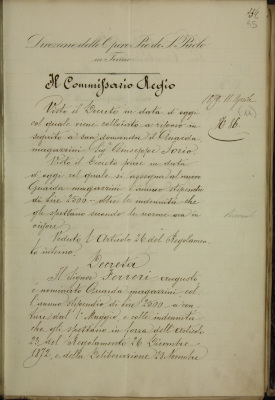 Direzione delle Opere Pie di S. Paolo
in Torino
Il Commissario Regio
Visto il Decreto in data d'oggi
col quale venne collocato a riposo in
seguito a sua domanda il Guarda
magazzini Sig. Giuseppe Torio
Visto il Decreto pure in data
d'oggi col quale si assegna al nuovo
Guarda magazzini l'annuo stipendio
di lire 2500 oltre le indennità che
gli spettano secondo le norme ora in
vigore
Veduto l'articolo 26 del Regolamen
to interno
Decreta
Il Signor Ferreri Augusto
è nominato Guarda magazzini col
l'annuo stipendio di lire 2500 a da
tare dal 1° Maggio e colle indennità
che gli spettano in forza dell'articolo
22 del Regolamento 26 Dicembre
1872 e della Deliberazione 23 Novembre
1879
N. 46